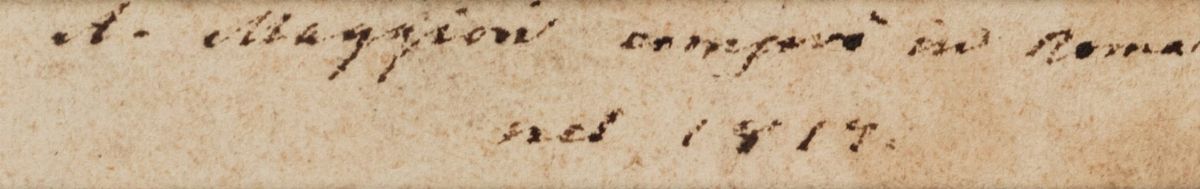 A. Maggiori comperò in Roma
nel 1818.